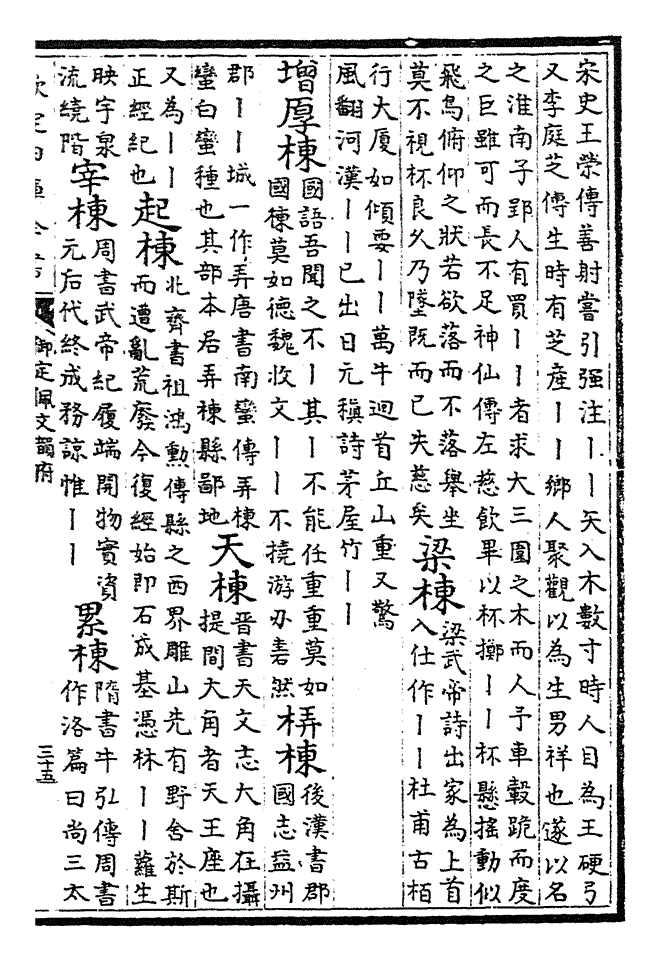 宋史王榮傳善射嘗引强注丨丨矢入木數寸時人目為王硬弓
又李庭芝傳生時有芝產丨丨鄉人聚觀以為生男祥也遂以名
之淮南子郢人有買丨丨者求大三圍之木而人予車轂跪而度
之巨雖可而長不足神仙傳左慈飲畢以杯擲丨丨杯懸搖動似
飛鳥俯仰之狀若欲落而不落舉坐
莫不視杯良久乃墜既而已失慈矣
梁棟
梁武帝詩出家為上首
入仕作丨丨杜甫古栢
行大厦如傾要丨丨萬牛迴首丘山重又驚
風翻河漢丨丨已出日元稹詩茅屋竹丨丨
增厚棟
國語吾聞之不丨其丨不能任重重莫如
國棟莫如德魏收文丨丨不撓游刅砉然
梇棟
後漢書郡
國志益州
郡丨丨城一作弄唐書南蠻傳弄棟
蠻白蠻種也其部本居弄棟縣鄙地
天棟
晉書天文志大角在攝
提間大角者天王座也
又為丨丨
正經紀也
起棟
北齊書祖鴻勲傳縣之西界雕山先有野舍於斯
而遭亂荒廢今復經始即石成基憑林丨丨蘿生
映宇泉
流繞階
宰棟
周書武帝紀履端開物實資
元后代終成務諒惟丨丨
累棟
隋書牛弘傳周書
作洛篇曰尚三太
欽定四庫全書
御定佩文韻府
三十五